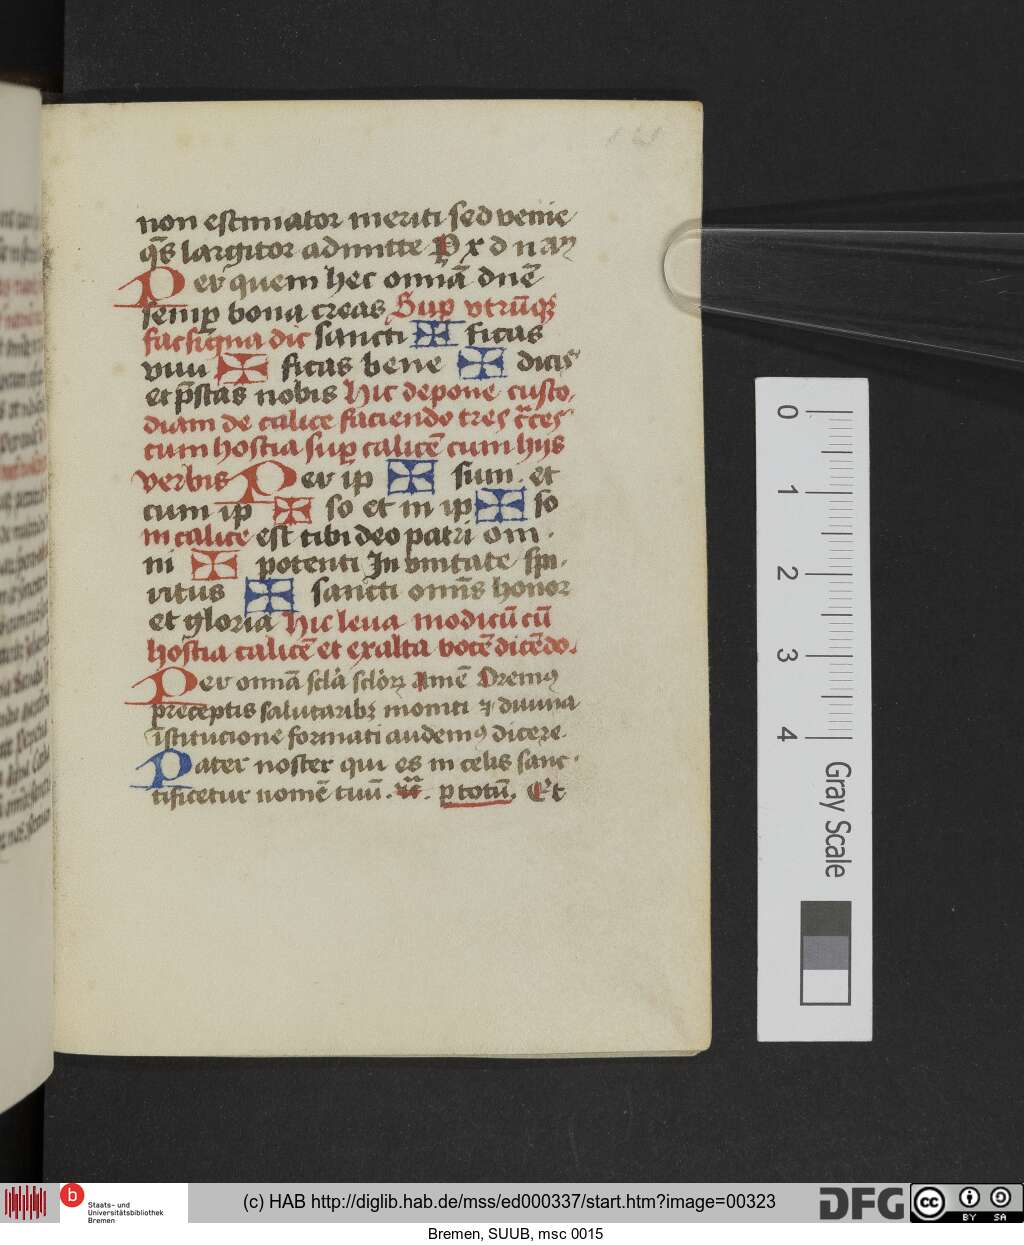 non estimator meriti sed venie
q̄s largitor admitte P x d n am̄
Per quem hec omīa dn̄e
semp bona creas Sup vtrūq3
fac signa dic sancti ficas
viui ficas bene dicis
et p̄stas nobis Hic depone custo-
diam de calice faciendo tres c̄ces
cum hostia sup calicē cum hijs
verbis Per ip sum. et
cum ip so et in ip so
in calice est tibi deo patri om-
ni potenti In vnitate spi-
ritus sancti omīs honor
et gloria Hic leua modicū cū
hostia calicē et exalta vocē dicēdo.
Per omīa sc̄la sc̄lorꝝ Amē Oremꝰ
preceptis salutaribꝫ moniti ⁊ diuina
īstitucione formati audemꝰ dicere
Pater noster qui es in celis sanc-
tificetur nomē tuū. p totū. Et
0
1
2
3
4
Gray Scale
b
Staats- und
Universitätsbibliothek
Bremen
(c) HAB http://diglib.hab.de/mss/ed000337/start.htm?image=00323
DFG
cc
BY SA
Bremen, SUUB, msc 0015